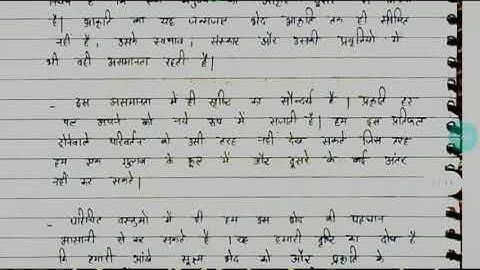 है। आकृति का यह जन्मजात भेद आकृति तक ही सीमित
नहीं है, उसके स्वभाव, संस्कार और उसकी प्रवृत्तियो में
भी वही असमानता रहती है।
- इस असमानता में ही सृष्टि का सौन्दर्य है। प्रकृति हर
पल अपने को नये रूप में सजाती है। हम इस प्रतिपल
होनेवाले परिवर्तन को उसी तरह नहीं देख सकते जिस तरह
हम एक गुलाब के फूल में और दूसरे के कई अंतर
नहीं कर सकते।
- परिचित वस्तुओं में ही हम इस भेद की पहचान
आसानी से कर सकते है। यह हमारी दृष्टि का दोष है
कि हमारी आंखे सूक्ष्म भेद को और प्रकृति के